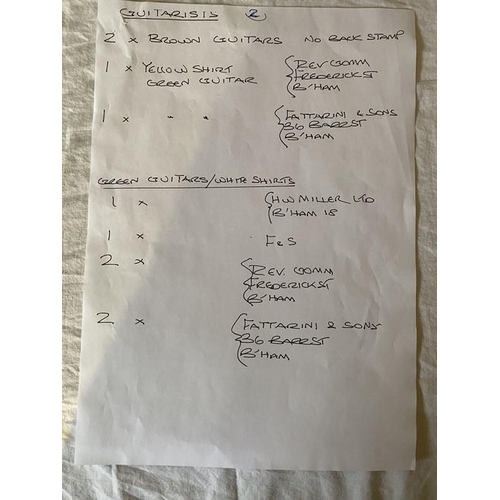 GUITARISTS (2)
2 x BROWN GUITARS NO BACK STAMP
1 x YELLOW SHIRT { REV GOMM
GREEN GUITAR { FREDERICK ST
{ B'HAM
1 x " " { FATTARINI & SONS
36 BARR ST
{ B'HAM
GREEN GUITARS/WHITE SHIRTS
1 x { H.W MILLER LTD
{ B'HAM 18
1 x · F & S
2 x { REV. GOMM
{ FREDERICK ST
{ B'HAM
2 x { FATTARINI & SONS
{ 36 BARR ST
{ B'HAM